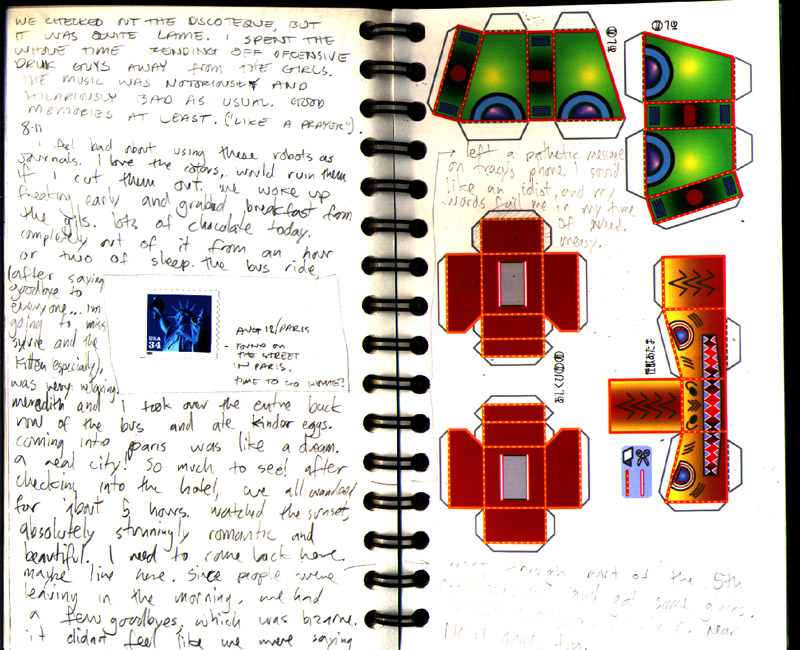 WE CHECKED OUT THE DISCOTEQUE, BUT
IT WAS QUITE LAME. I SPENT THE
WHOLE TIME FENDING OFF OFFENSIVE
DRUK GUYS AWAY FROM THE GIRLS.
THE MUSIC WAS NOTORIOUSLY AND
HILARIOUSLY BAD AS USUAL. GOOD
MEMORIES AT LEAST. ("LIKE A PRAYER").
8·11
i feel bad about using these robots as
journals. I love the colors, would ruin them
if I cut them out. we woke up
freaking early and grabed breakfast from
the girls. lots of chocolate today.
completely out of it from an hour
or two of sleep. the bus ride,
(after saying
goodbye to
everyone... im
going to miss
sylvie and the
kitten especially,
was very relaxing.
USA
34
AUG 12/PARIS
- FOUND ON
THE STREET
IN PARIS.
TIME TO GO HOME?
meredith and I took over the entire back
row of the bus and ate kinder eggs.
coming into paris was like a dream.
a real city! So much to see! after
checking into the hotel, we all wandered
for about 5 hours. watched the sunset,
absolutely stunningly romantic and
beautiful. I need to come back here.
maybe live here. Since people were
leaving in the morning, we had
a few goodbyes, which was bizarre.
it didnt feel like we were saying
left a pathetic message
on tracy's phone. I sound
like an idiot, and my
words fail me in my time
of need.
uneasy.
part of the 5th
and got some
near